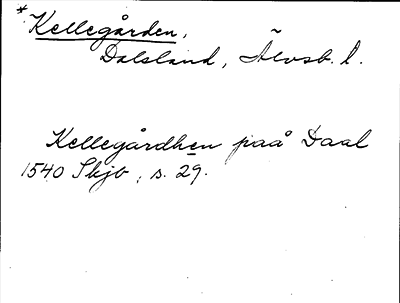 * Kellegården,
Dalsland, Älvsb. l.
Kellegårdhen paå Daal
1540 Skjb, s. 29.